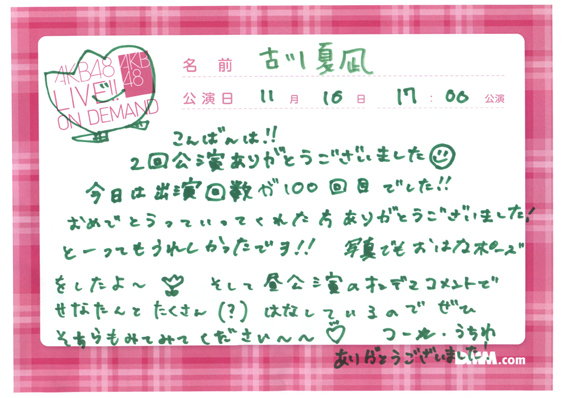 AKB48
LIVE!!
ON DEMAND
AKB
48
名前 古川夏凪
公演日 11月16日 17:00 公演
こんばんは!!
2回公演ありがとうございました
今日は出演回数が100回目でした!!
おめでとうっていってくれた方ありがとうございました!
とーってもうれしかったでヨ!! 写真でもおはなポーズ
をしたよ〜 そして昼公演のオンデマコメントで
せなたんとたくさん(?)はなしているのでぜひ
そちらもみてみてください〜〜♡ コール・うちわ
ありがとうございました!
.com